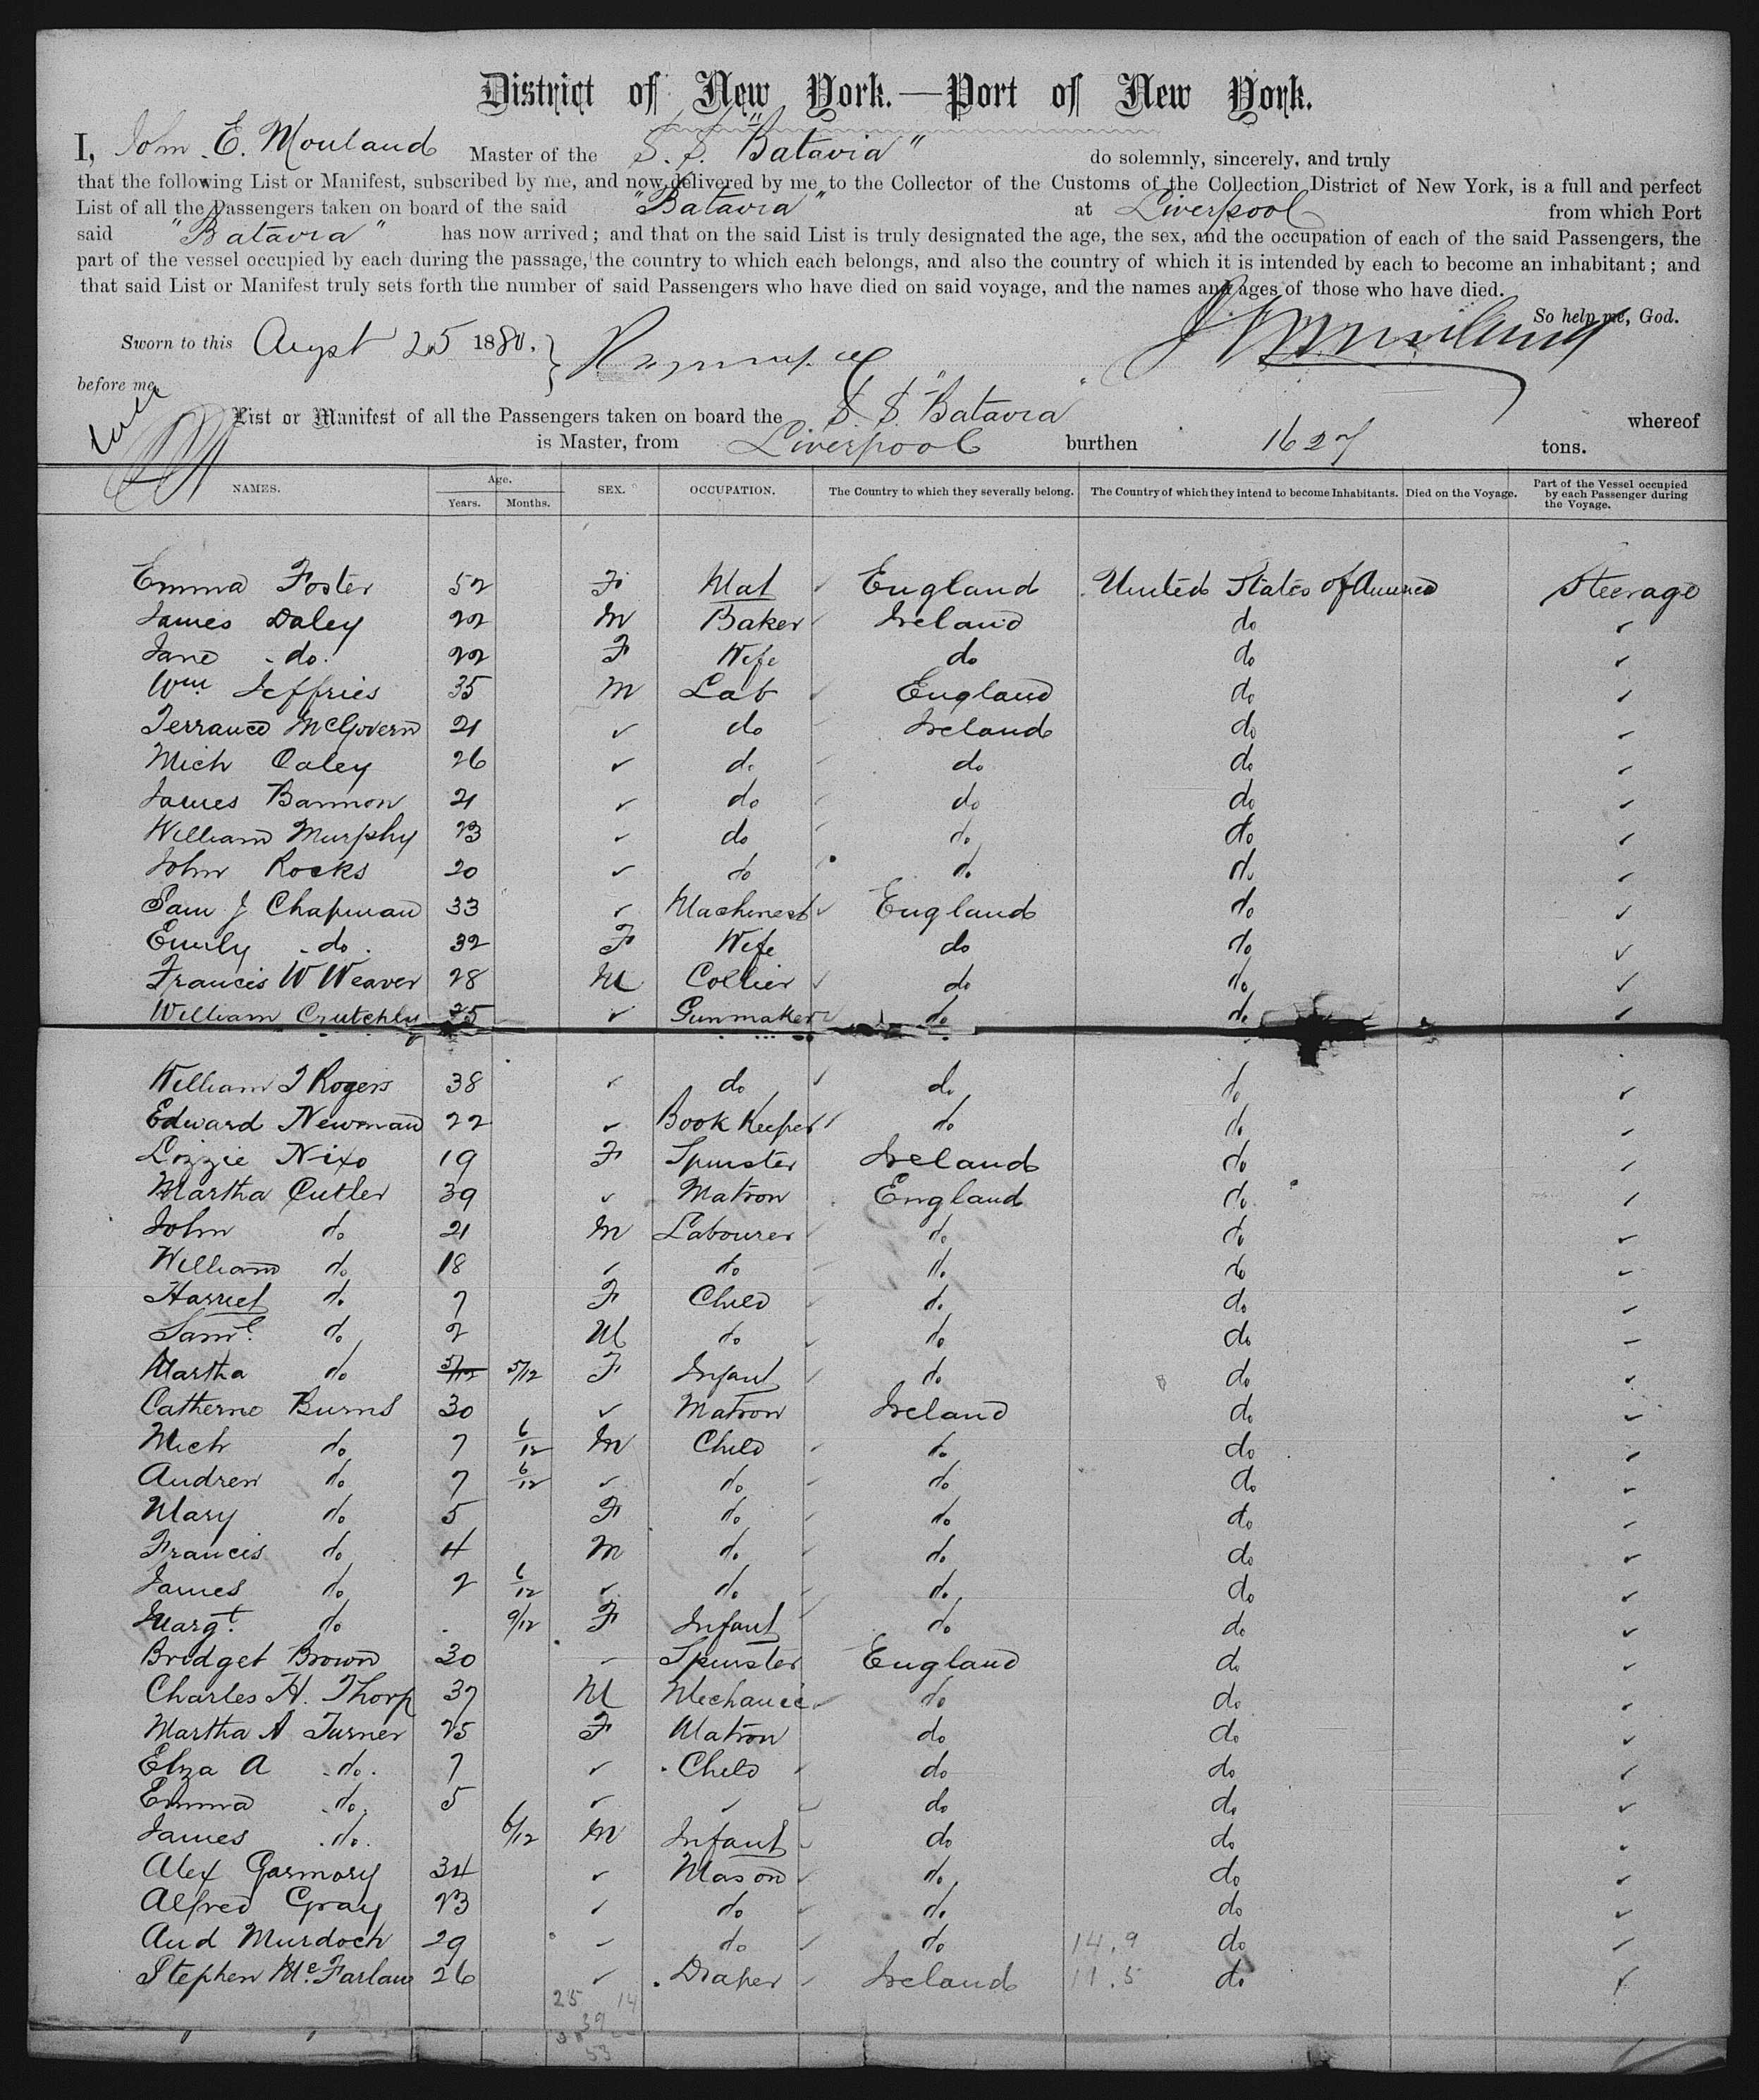 District of New York.—Port of New York.
I, John E. Mouland Master of the S. S. "Batavia" do solemnly, sincerely, and truly
that the following List or Manifest, subscribed by me, and now delivered by me to the Collector of the Customs of the Collection District of New York, is a full and perfect
List of all the Passengers taken on board of the said "Batavia" at Liverpool from which Port
said "Batavia" has now arrived; and that on the said List is truly designated the age, the sex, and the occupation of each of the said Passengers, the
part of the vessel occupied by each during the passage, the country to which each belongs, and also the country of which it is intended by each to become an inhabitant; and
that said List or Manifest truly sets forth the number of said Passengers who have died on said voyage, and the names and ages of those who have died.
So help me, God.
Sworn to this Augst 25 1880.
before me
List or Manifest of all the Passengers taken on board the S. S. "Batavia" whereof
is Master, from Liverpool burthen 1627 tons.
NAMES. Age. Years. Months. SEX. OCCUPATION. The Country to which they severally belong. The Country of which they intend to become Inhabitants. Died on the Voyage. Part of the Vessel occupied by each Passenger during the Voyage.
Emma Foster 52 F Mat England United States of America Steerage
James Daley 22 M Baker Ireland do
Jane do. 22 F Wife do do
Wm Jeffries 35 M Lab England do
Terrance McGovern 21 do Ireland do
Mich Caley 26 do do do
James Bannon 21 do do do
William Murphy 23 do do do
John Rocks 20 do do do
Sam J Chapman 33 Machinest England do
Emily do. 32 F Wife do do
Francis W Weaver 28 M Collier do do
William Crutchly 25 Gunmaker do do
William T Rogers 38 do do do
Edward Newman 22 Book Keeper do do
Lizzie Nixo 19 F Spinster Ireland do
Martha Cutler 39 Matron England do
John do 21 M Labourer do do
William do 18 do do do
Harriet do 7 F Child do do
Saml. do 2 M do do do
Martha do 5/12 5/12 F Infant do do
Catherne Burns 30 Matron Ireland do
Mich do 7 6/12 M Child do do
Andrew do 7 6/12 do do do
Mary do 5 F do do do
Francis do 4 M do do do
James do 2 6/12 do do do
Margt. do 9/12 F Infant do do
Bridget Brown 30 Spinster England do
Charles H. Thorp 37 M Mechanic do do
Martha A Turner 25 F Matron do do
Elza A do. 7 Child do do
Emma do. 5 do do
James do. 6/12 M Infant do do
Alex Garmory 34 Mason do do
Alfred Gray 23 do do do
And Murdoch 29 do do 14.9 do
Stephen Mc.Farlan 26 Draper Ireland 11.5 do
25 14
39
53